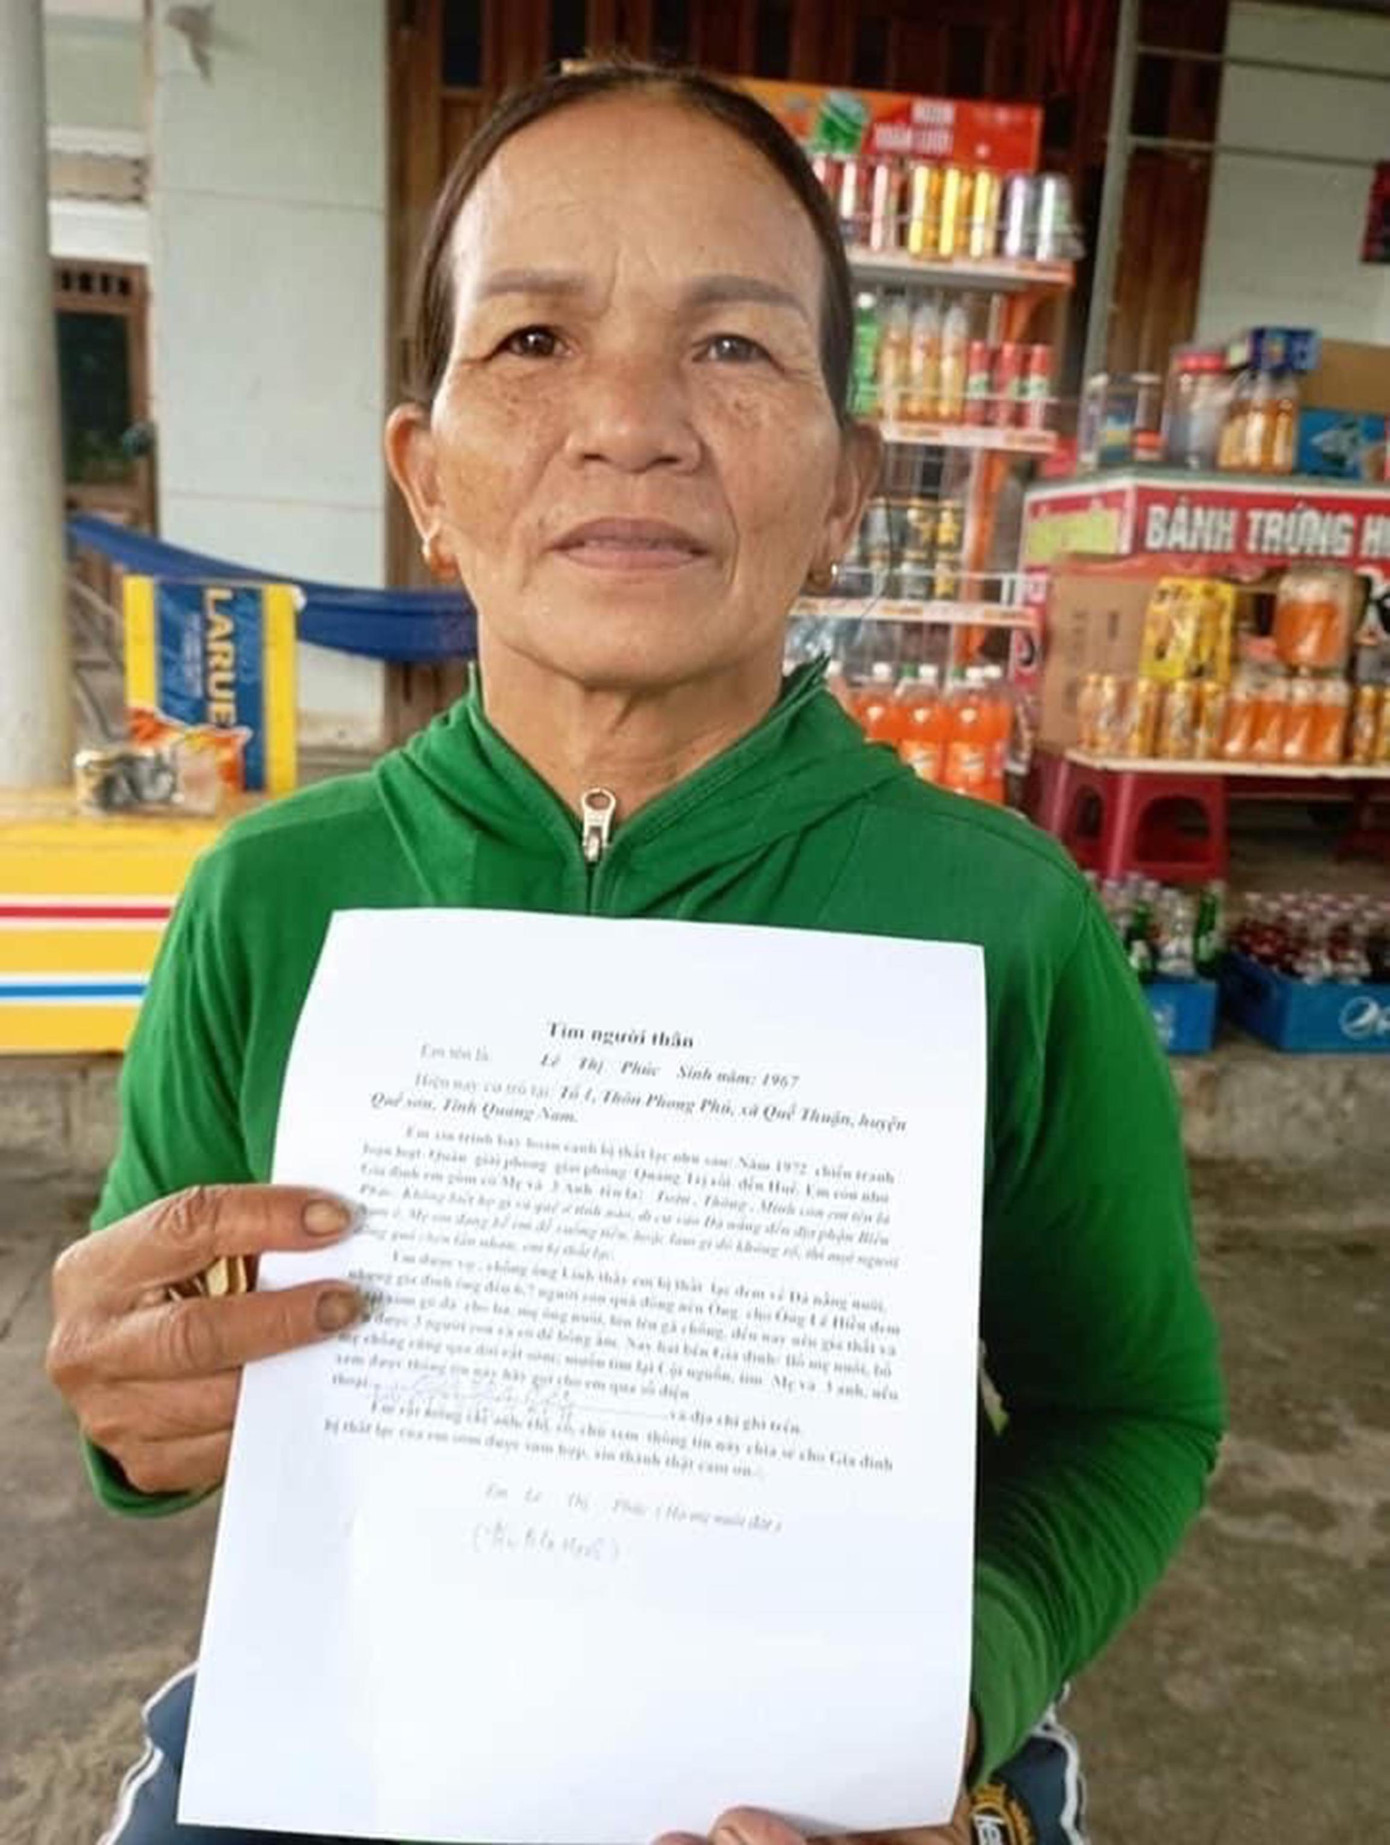 XUÂN LƯỢI
LARUE
BÁNH TRỨNG H
Tìm người thân
Em tên là: Lê Thị Phúc Sinh năm: 1967
Hiện nay cư trú tại: Tổ 1, Thôn Phong Phú, xã Quế Thuận, huyện
Quế sơn, Tỉnh Quảng Nam.
Em xin trình bày hoàn cảnh bị thất lạc như sau: Năm 1972 chiến tranh
loạn lạc. Quân giải phóng giải phóng Quảng Trị rồi đến Huế. Em còn nhỏ
Gia đình em gồm có Mẹ và 3 Anh tên là: Tuấn, Thông, Minh còn em tên là
Phúc. Không biết họ gì và quê ở tỉnh nào, di cư vào Đà nẵng đến địa phận Biên
ở. Mẹ em đang bế em để xuống tiền, hoặc làm gì đó không rõ, thì một người
em bị thất lạc.
Em được vợ, chồng ông Linh thấy em bị thất lạc đem về Đà nẵng nuôi,
nhưng gia đình ông đến 6,7 người con quá đông nên Ông cho Ông Lê Hiền đem
cho ba, mẹ ông nuôi, lớn lên gã chồng, đến nay nên gia thất và
được 3 người con và có dễ bồng ẵm. Nay hai bên Gia đình: Bố mẹ nuôi, bố
mẹ chồng cũng qua đời rất sớm; muốn tìm lại Cội nguồn, tìm Mẹ và 3 anh, nếu
xem được thông tin này hãy gọi cho em qua số điện
thoại và địa chỉ ghi trên.
Em rất mong các anh, chị, cô, chú xem thông tin này chia sẻ cho Gia đình
bị thất lạc của em sớm được sum họp, xin thành thật cảm ơn.
Em Lê Thị Phúc (Họ mẹ nuôi đặt)